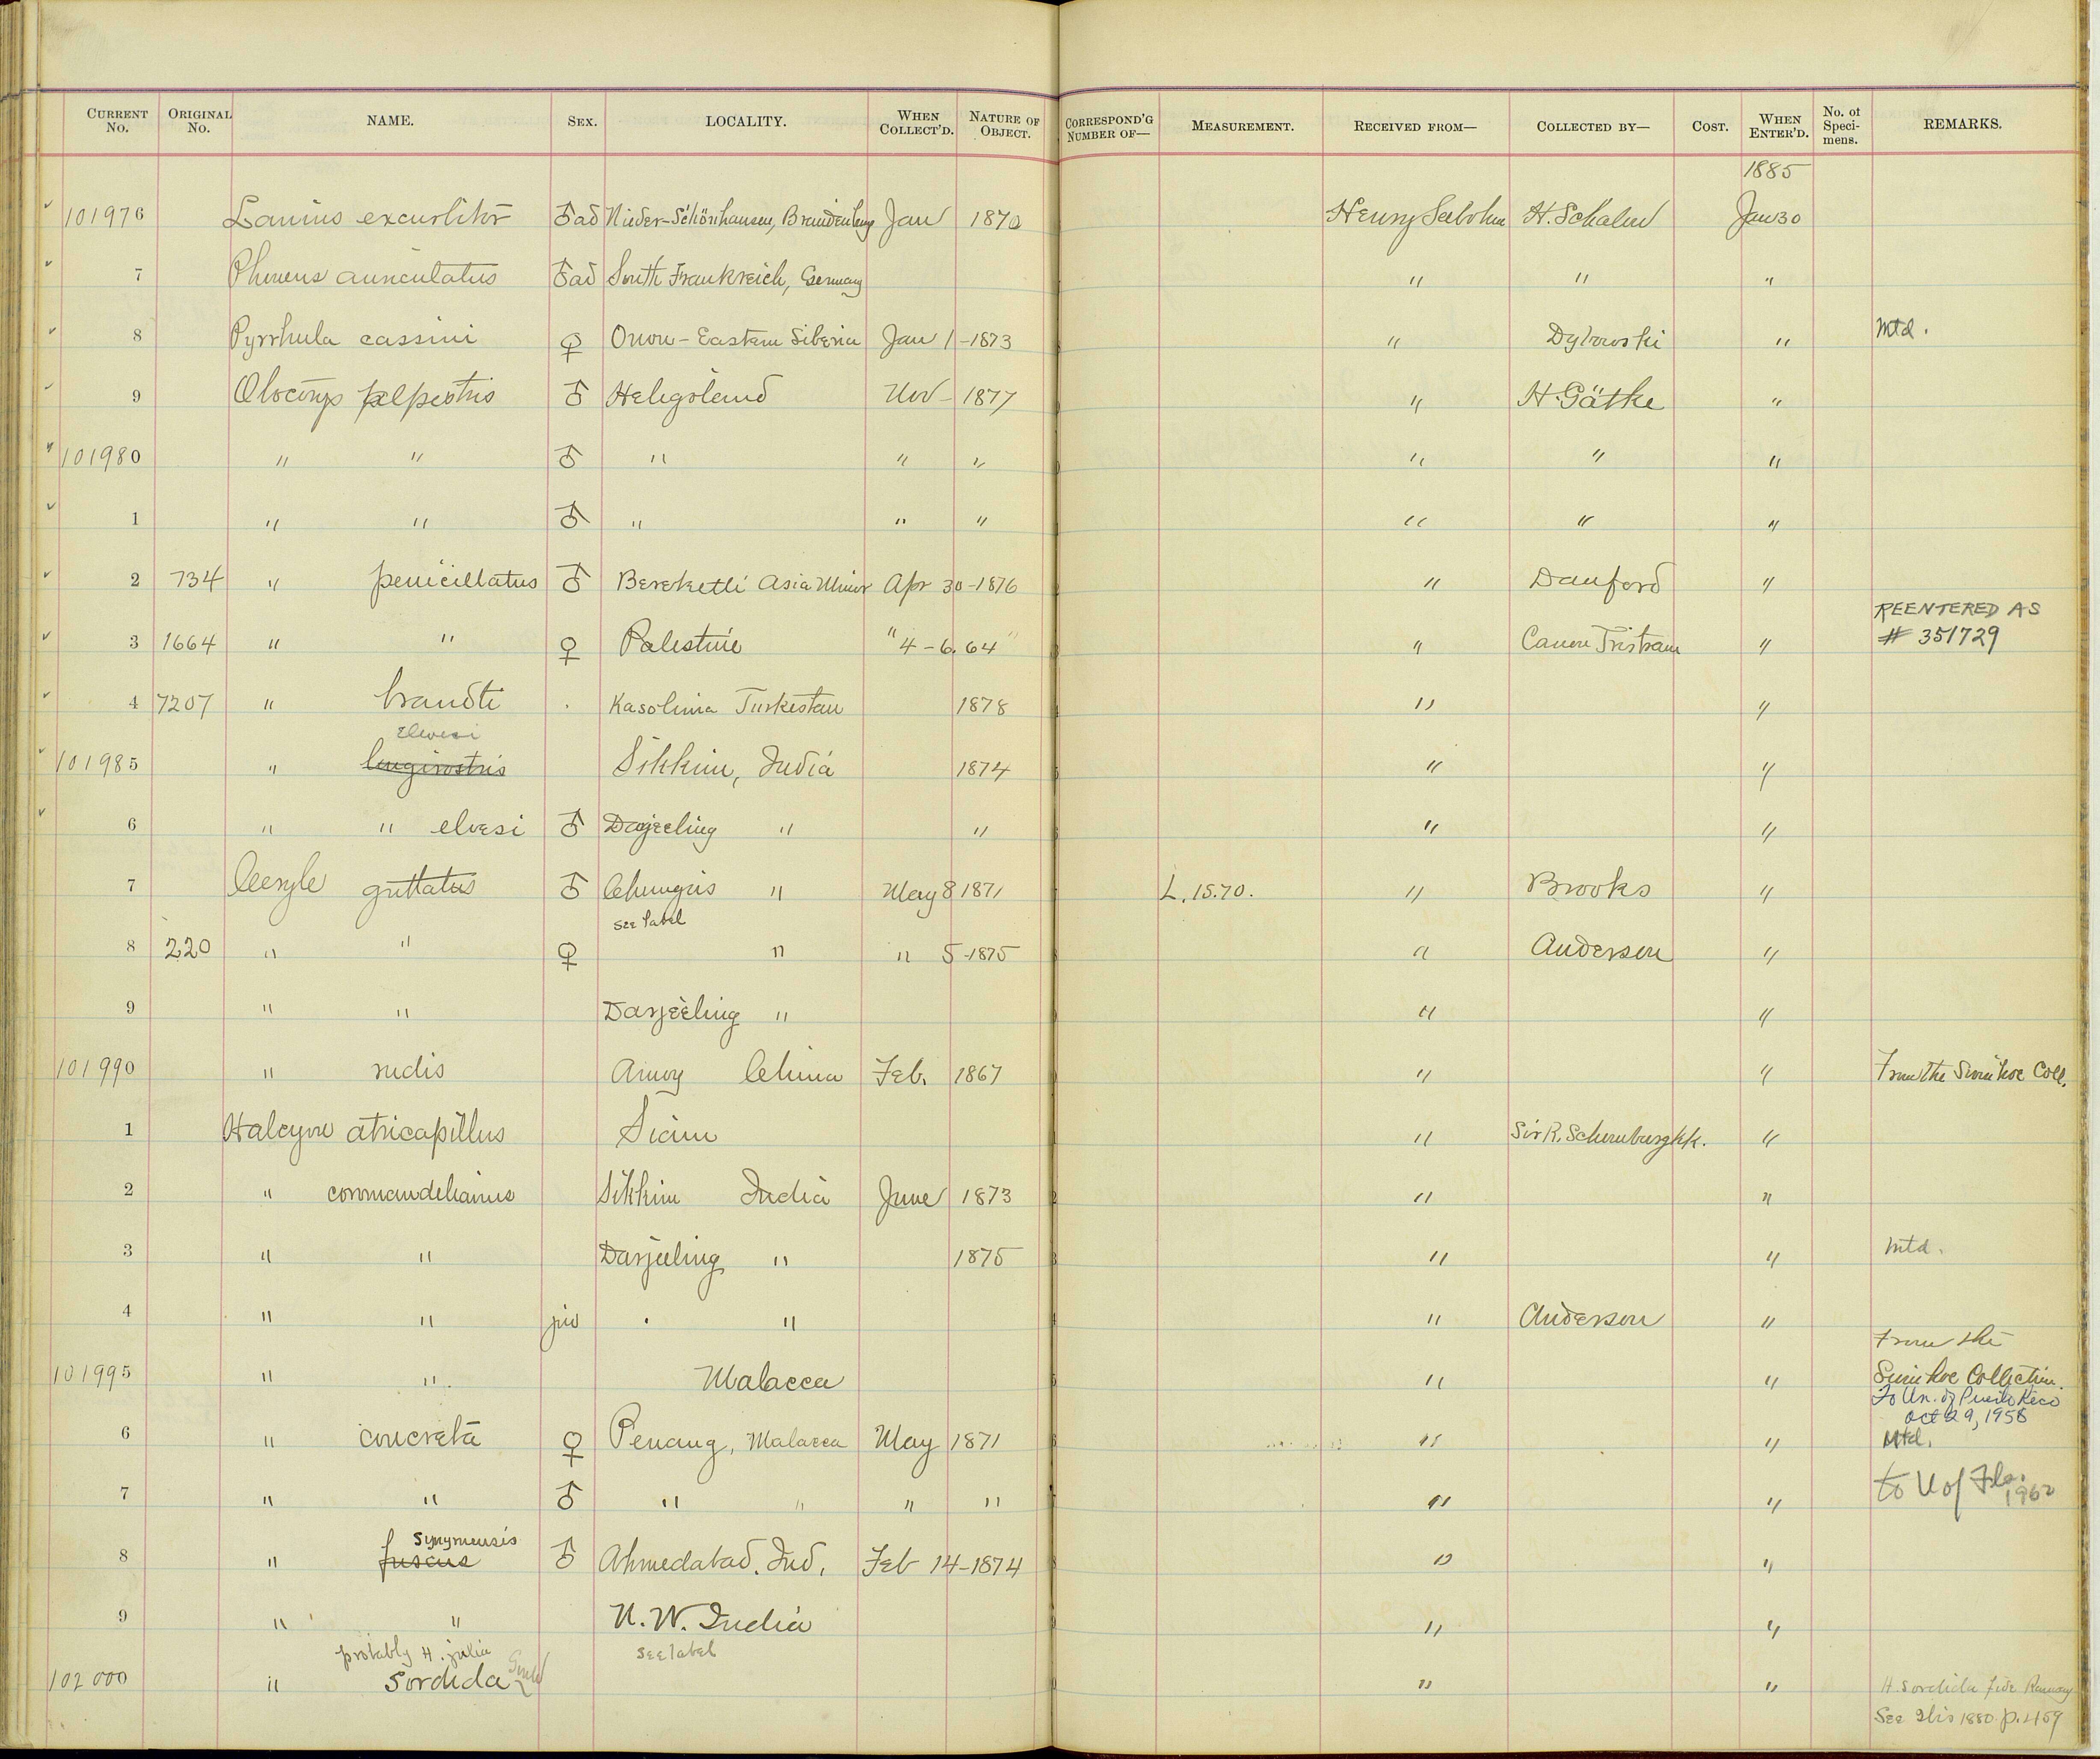 CURRENT No. ORIGINAL No. NAME. SEX. LOCALITY. WHEN COLLECT'D. NATURE OF OBJECT. CORRESPOND'G NUMBER OF— MEASUREMENT. RECEIVED FROM— COLLECTED BY— COST. WHEN ENTER'D. No. of Specimens. REMARKS.
1885
101976 Lanius excubitor ♂ ad Nieder-Schönhausen, Brandenburg Jan 1870 Henry Seebohm H. Schalow Jan 30
7 auriculatus ♂ ad South Frankreich, Germany " " "
8 Pyrrhula cassini ♀ Onon - Eastern Siberia Jan 1 - 1873 " Dybowski " Mtd.
9 Otocorys alpestris ♂ Heligoland Nov - 1877 " H. Gätke "
101980 " " ♂ " " " " " "
1 " " ♂ " " " " " "
2 734 " penicillatus ♂ Bereketli Asia Minor Apr 30-1876 " Danford "
3 1664 " " ♀ Palestine " 4-6. 64 " " Canon Tristram " REENTERED AS # 351729
4 7207 " brandti . Turkestan 1878 " "
elwesi
101985 " longirostris Sikkim, India 1874 " "
6 " " elwesi ♂ Darjeeling " " " "
7 Ceryle guttatus ♂ " May 8 1871 L. 15.70. " Brooks "
see label
8 220 " " ♀ " " 5-1875 " Anderson "
9 " " Darjeeling " " "
101990 " rudis Amoy China Feb. 1867 " " From the Swinhoe Coll.
1 Halcyon atricapillus Siam " Sir R. Schomburgkk. "
2 " corromandelianus Sikkim India June 1873 " "
3 " " Darjeeling " 1875 " " Mtd.
4 " " juv . " " Anderson "
101995 " " Malacca " " From the Swinhoe Collection.
To Un. of Puerto Rico
Oct 29, 1958
6 " concreta ♀ Penang, Malacca May 1871 " " Mtd.
7 " " ♂ " " " " " " to U of Fla. 1962
8 " fuscus ♂ Ahmedabad. Ind. Feb 14-1874 " "
9 " " N. W. India " "
probably H. julia see label
102000 " Sordida Gould " " H. sordida fide Ramsay
See Ibis 1880 p. 459